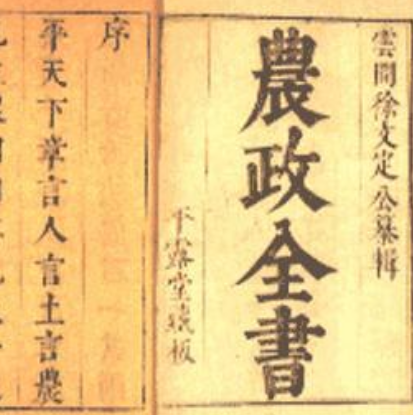 雲間徐文定公纂輯
農政全書
平露堂藏板
序
平天下章言人言土言農